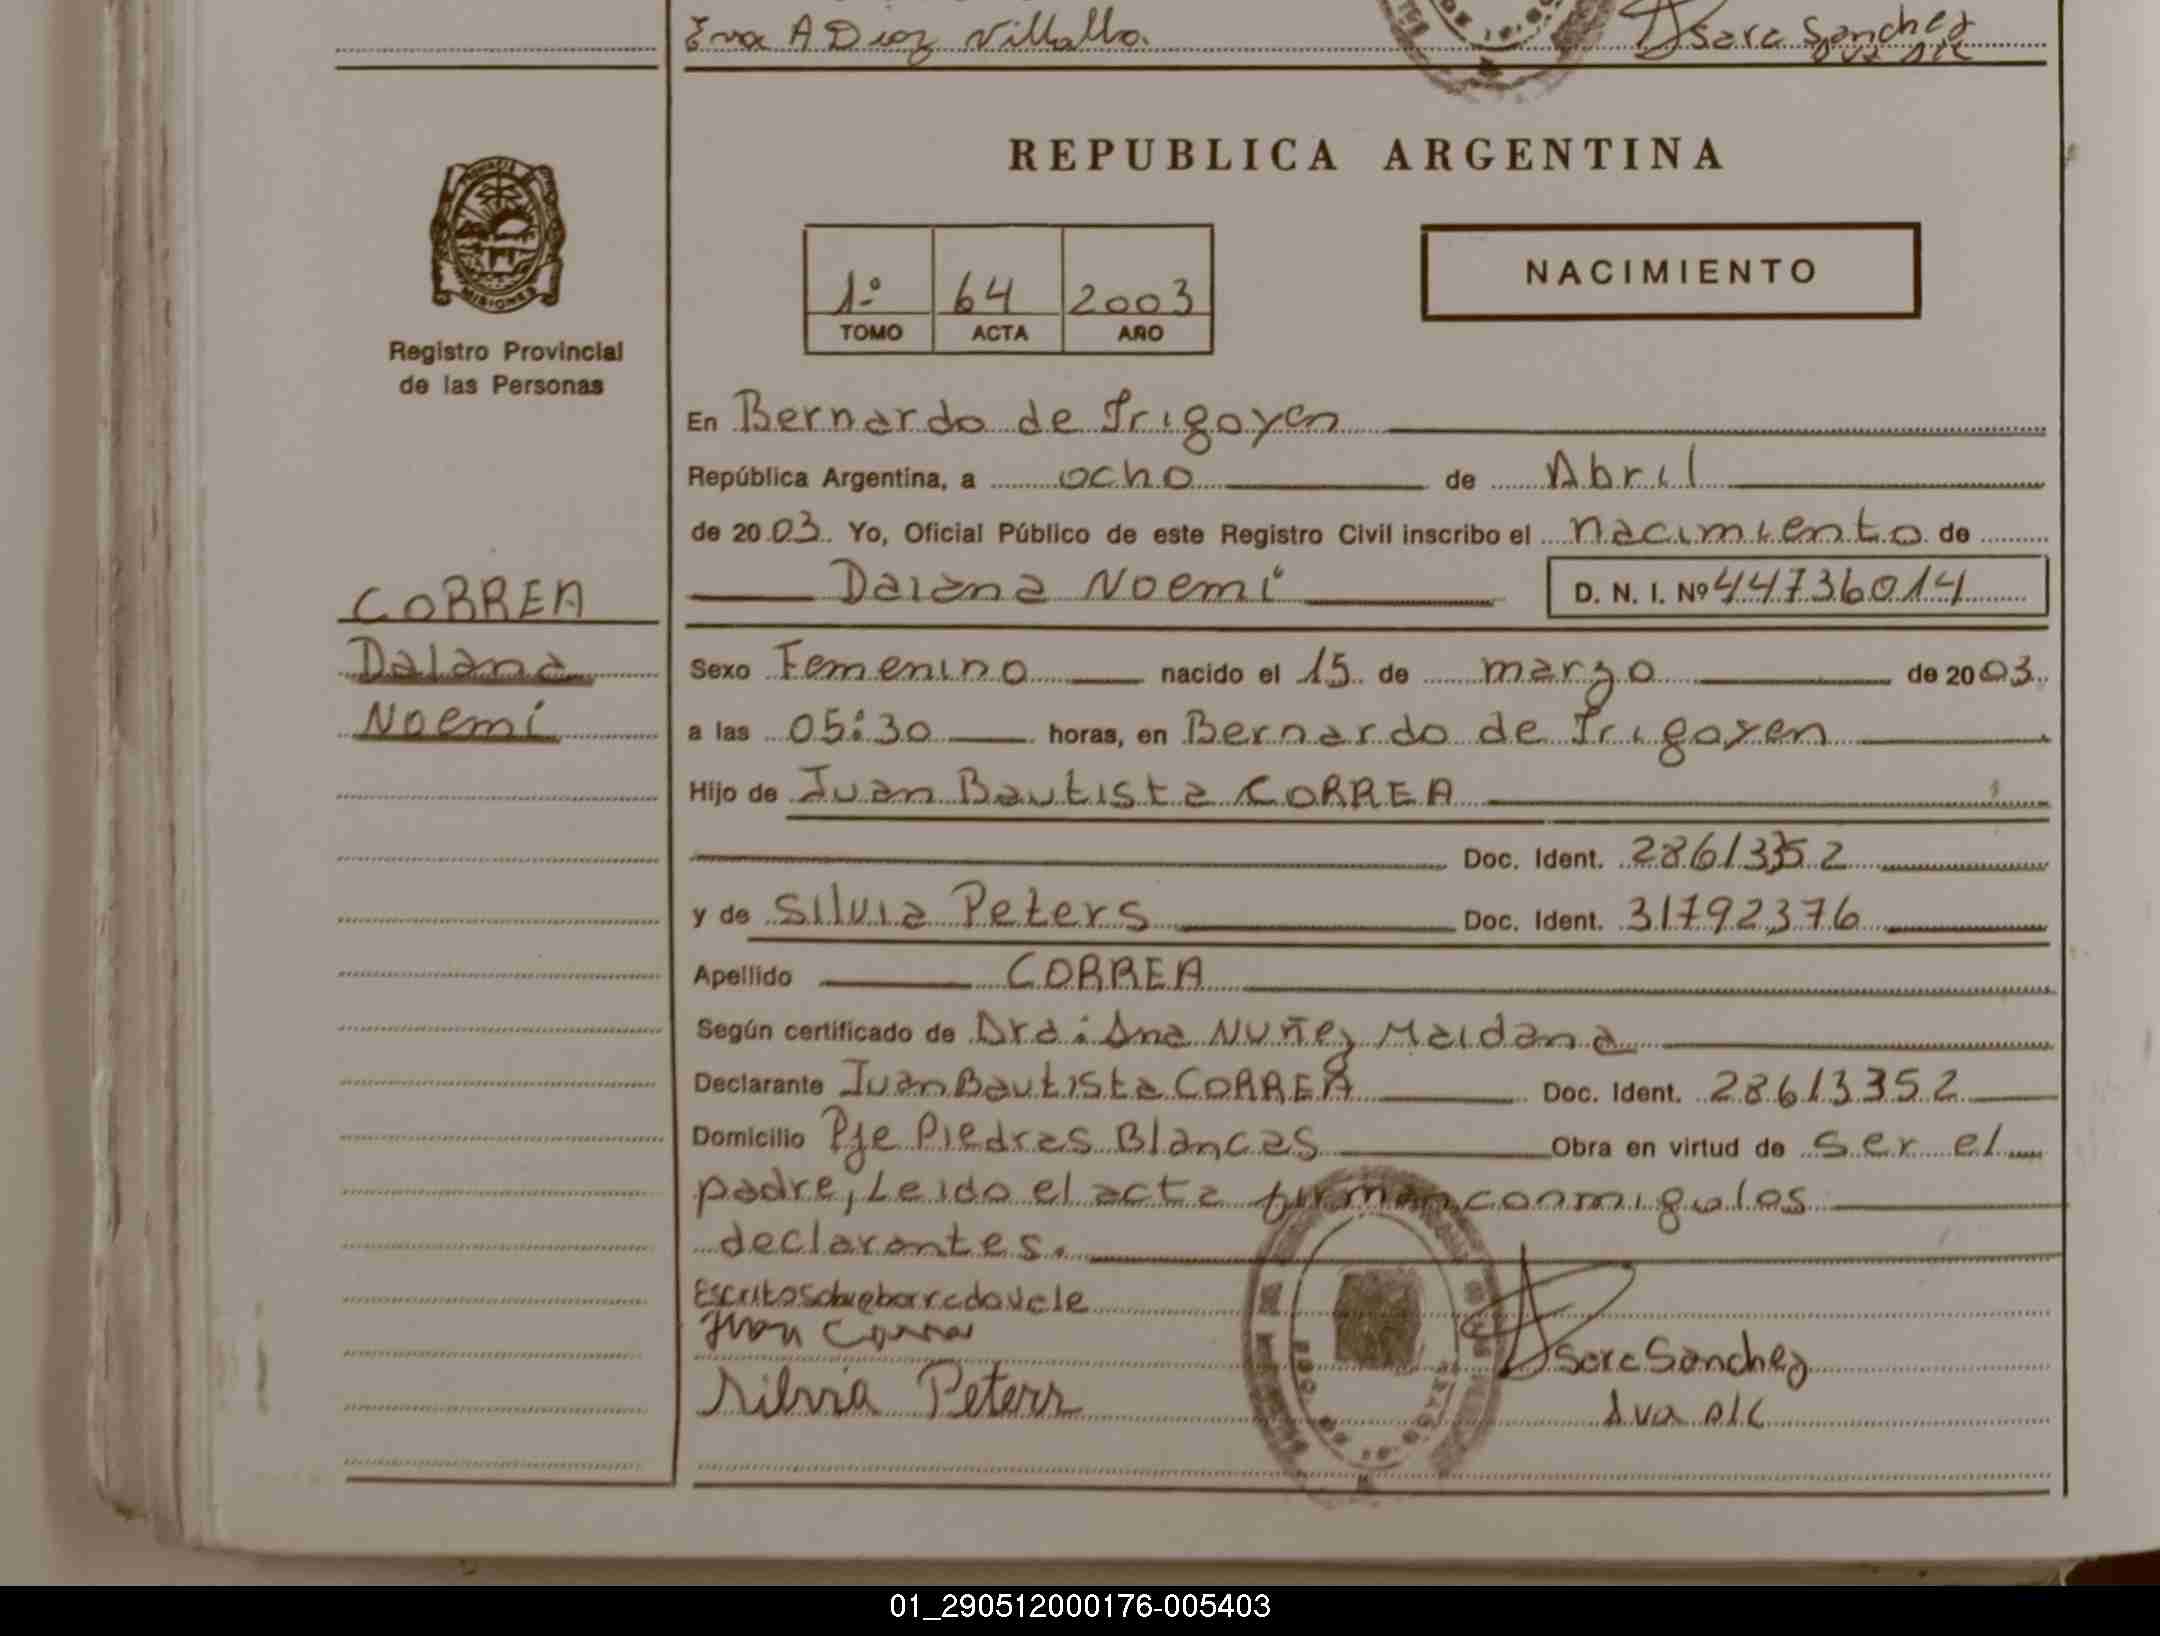 Eva A Diaz Villalba.
Sara Sanchez
REPUBLICA ARGENTINA
MISIONES
Registro Provincial
de las Personas
1º 64 2003
TOMO ACTA AÑO
NACIMIENTO
En Bernardo de Irigoyen
República Argentina, a ocho de Abril
de 2003. Yo, Oficial Público de este Registro Civil inscribo el nacimiento de
Daiana Noemí D. N. I. Nº 44736014
CORREA
Daiana
Noemí
Sexo Femenino nacido el 15 de marzo de 2003
a las 05:30 horas, en Bernardo de Irigoyen
Hijo de Juan Bautista CORREA
Doc. Ident. 28613352
y de Silvia Peters Doc. Ident. 31792376
Apellido CORREA
Según certificado de Dra: Ana Nuñez Maidana
Declarante Juan Bautista CORREA Doc. Ident. 28613352
Domicilio Pje Piedras Blancas Obra en virtud de ser el
padre, Leido el acta firman conmigo los
declarantes.
Escrito sobre borrado vale
Juan Correa
Silvia Peters
Sara Sanchez
01_290512000176-005403